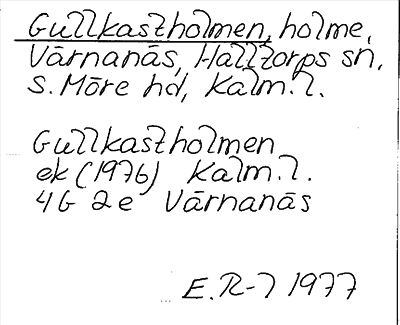 Gullkastholmen, holme,
Värnanäs, Halltorps sn,
S. Möre hd, Kalm. l.
Gullkastholmen
ek (1976) Kalm. l.
4G 2e Värnanäs
E. R-7 1977